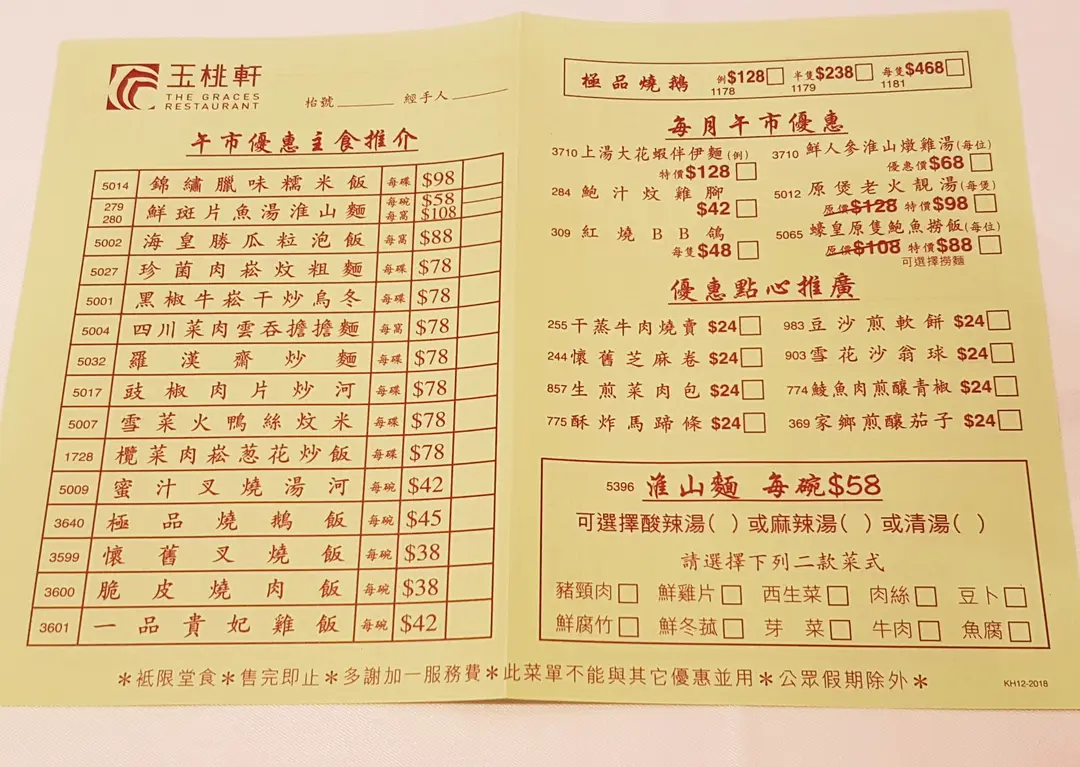 玉桃軒
THE GRACES
RESTAURANT
枱號______ 經手人______
午市優惠主食推介
5014 錦繡臘味糯米飯 每碟 $98
279 280 鮮斑片魚湯淮山麵 每碗 $58 每窩 $108
5002 海皇勝瓜粒泡飯 每窩 $88
5027 珍菌肉崧炆粗麵 每碟 $78
5001 黑椒牛崧干炒烏冬 每碟 $78
5004 四川菜肉雲吞擔擔麵 每窩 $78
5032 羅漢齋炒麵 每碟 $78
5017 豉椒肉片炒河 每碟 $78
5007 雪菜火鴨絲炆米 每碟 $78
1728 欖菜肉崧葱花炒飯 每碟 $78
5009 蜜汁叉燒湯河 每碗 $42
3640 極品燒鵝飯 每碗 $45
3599 懷舊叉燒飯 每碗 $38
3600 脆皮燒肉飯 每碗 $38
3601 一品貴妃雞飯 每碗 $42
極品燒鵝 例$128 半隻$238 每隻$468
1178 1179 1181
每月午市優惠
3710 上湯大花蝦伴伊麵(例)
特價$128
284 鮑汁炆雞腳
$42
309 紅燒BB鴿
每隻$48
3710 鮮人參淮山燉雞湯(每位)
優惠價$68
5012 原煲老火靚湯(每煲)
原價$128 特價$98
5065 蠔皇原隻鮑魚撈飯(每位)
原價$108 特價$88
可選擇撈麵
優惠點心推廣
255 干蒸牛肉燒賣 $24 983 豆沙煎軟餅 $24
244 懷舊芝麻卷 $24 903 雪花沙翁球 $24
857 生煎菜肉包 $24 774 鯪魚肉煎釀青椒 $24
775 酥炸馬蹄條 $24 369 家鄉煎釀茄子 $24
5396 淮山麵 每碗$58
可選擇酸辣湯( )或麻辣湯( )或清湯( )
請選擇下列二款菜式
豬頸肉 鮮雞片 西生菜 肉絲 豆卜
鮮腐竹 鮮冬菰 芽菜 牛肉 魚腐
*袛限堂食*售完即止*多謝加一服務費*此菜單不能與其它優惠並用*公眾假期除外*
KH12-2018